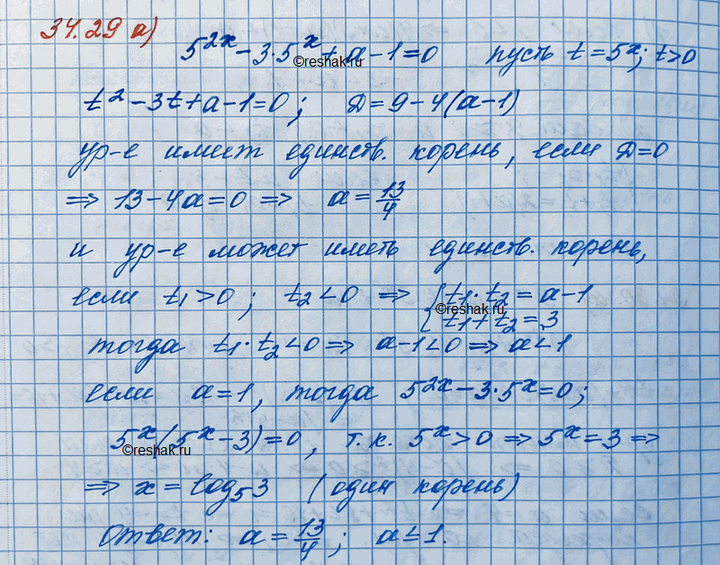 34.29 а)
5^{2x} - 3·5^x + a - 1 = 0 пусть t = 5^x; t>0
t² - 3t + a - 1 = 0; Д = 9 - 4(a-1)
ур-е имеет единств. корень, если Д=0
⇒ 13 - 4a = 0 ⇒ a = 13/4
и ур-е может иметь единств. корень,
если t₁ > 0; t₂ < 0 ⇒ { t₁·t₂ = a-1
t₁ + t₂ = 3
тогда t₁·t₂ < 0 ⇒ a-1<0 ⇒ a<1
если a=1, тогда 5^{2x} - 3·5^x = 0;
5^x(5^x - 3) = 0, т.к. 5^x > 0 ⇒ 5^x = 3 ⇒
⇒ x = log₅3 (один корень)
Ответ: a = 13/4; a ≤ 1.
©reshak.ru
©reshak.ru
©reshak.ru